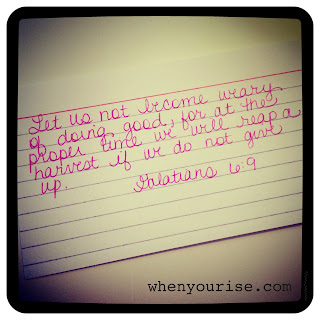 Let us not become weary
of doing good, for at the
proper time we will reap a
harvest if we do not give
up.
Galatians 6:9
whenyourise.com